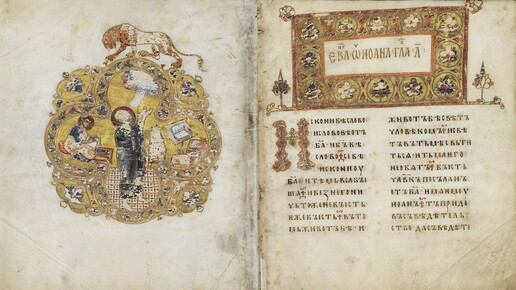 ЕВА҃ Ѡ ИОАНА ГЛА҃ А҃
ИСКОНИ БѢ СЛОВО
И СЛОВО БѢ ОТЪ
БА҃ И БЪ҃ БѢ
СЛОВО · СЕ БѢ
ИСКОНИ ОУ
БА҃ И ТѢМЬ ВЬСА БꙐ
ША И БЕЖ НЕГО НИ
ЧЬТОЖЕ НЕ БꙐСТЬ
ѤЖЕ БꙐСТЬ · ВЪ ТО
МЬ ЖИВОТЪ БѢ · И
ЖИВОТЪ БѢ СВѢТЪ
ЧЛОВѢКОМЪ · И СВѢ
ТЪ ВЪ ТЬМѢ СВЬТИ
ТЬСѦ · И ТЬМА ѤГО
НЕ ОБѦТЪ · БꙐСТЬ
ЧЛОВѢКЪ ПОСЪЛАНЪ
ОТЪ БА҃ · ИМѦ ѤМОУ
ИОАНЪ · ТЪ ПРИДЕ
ВЪ СЪВѢДѢТЕЛЬ
СТВО · ДА СЪВѢДѢТЕ